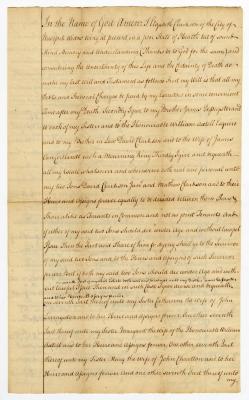 In the Name of God Amen I Elizabeth Clarkson of the City of
New York Widow being at present in a poor State of Health but of sound
Mind Memory and Understanding Thanks be to God for the same and
considering the Uncertainty of this Life and the Certainty of Death do
make my last Will and Testament as follows First my Will is that all my
Debts and Funeral Charges be paid by my Executors in some convenient
time after my Death Secondly I give to my Brother James
to each of my Sisters and to the Honourable William
and to my Brother in Law David Clarkson and to the Wife of James
each a Mourning Ring Thirdly I give and bequeath
all my Estate whatsoever and wheresoever both real and personal unto
my two Sons David Clarkson Jun and Mathew Clarkson and to their
Heirs and Assigns forever equally to be divided between them Share and
Share alike as Tenants in Common and not as joint Tenants And
if either of my said two Sons should die under Age and without lawful
Issue Then the Part and Share of him so dying shall go to the Survivor
of my said two Sons and to the Heirs and Assigns of such Survivor
forever But if both my said two Sons should die under Age and without
lawful Issue Then
and
one other seventh Part thereof unto my Sister Catherine the Wife of John
Livingston and to her Heirs and Assigns forever One other seventh
Part thereof unto my Sister Margaret the Wife of the Honourable William
and to her Heirs and Assigns forever One other seventh Part
thereof unto my Sister Mary the Wife of John Charlton and to her
Heirs and Assigns forever And one other seventh Part thereof unto
my